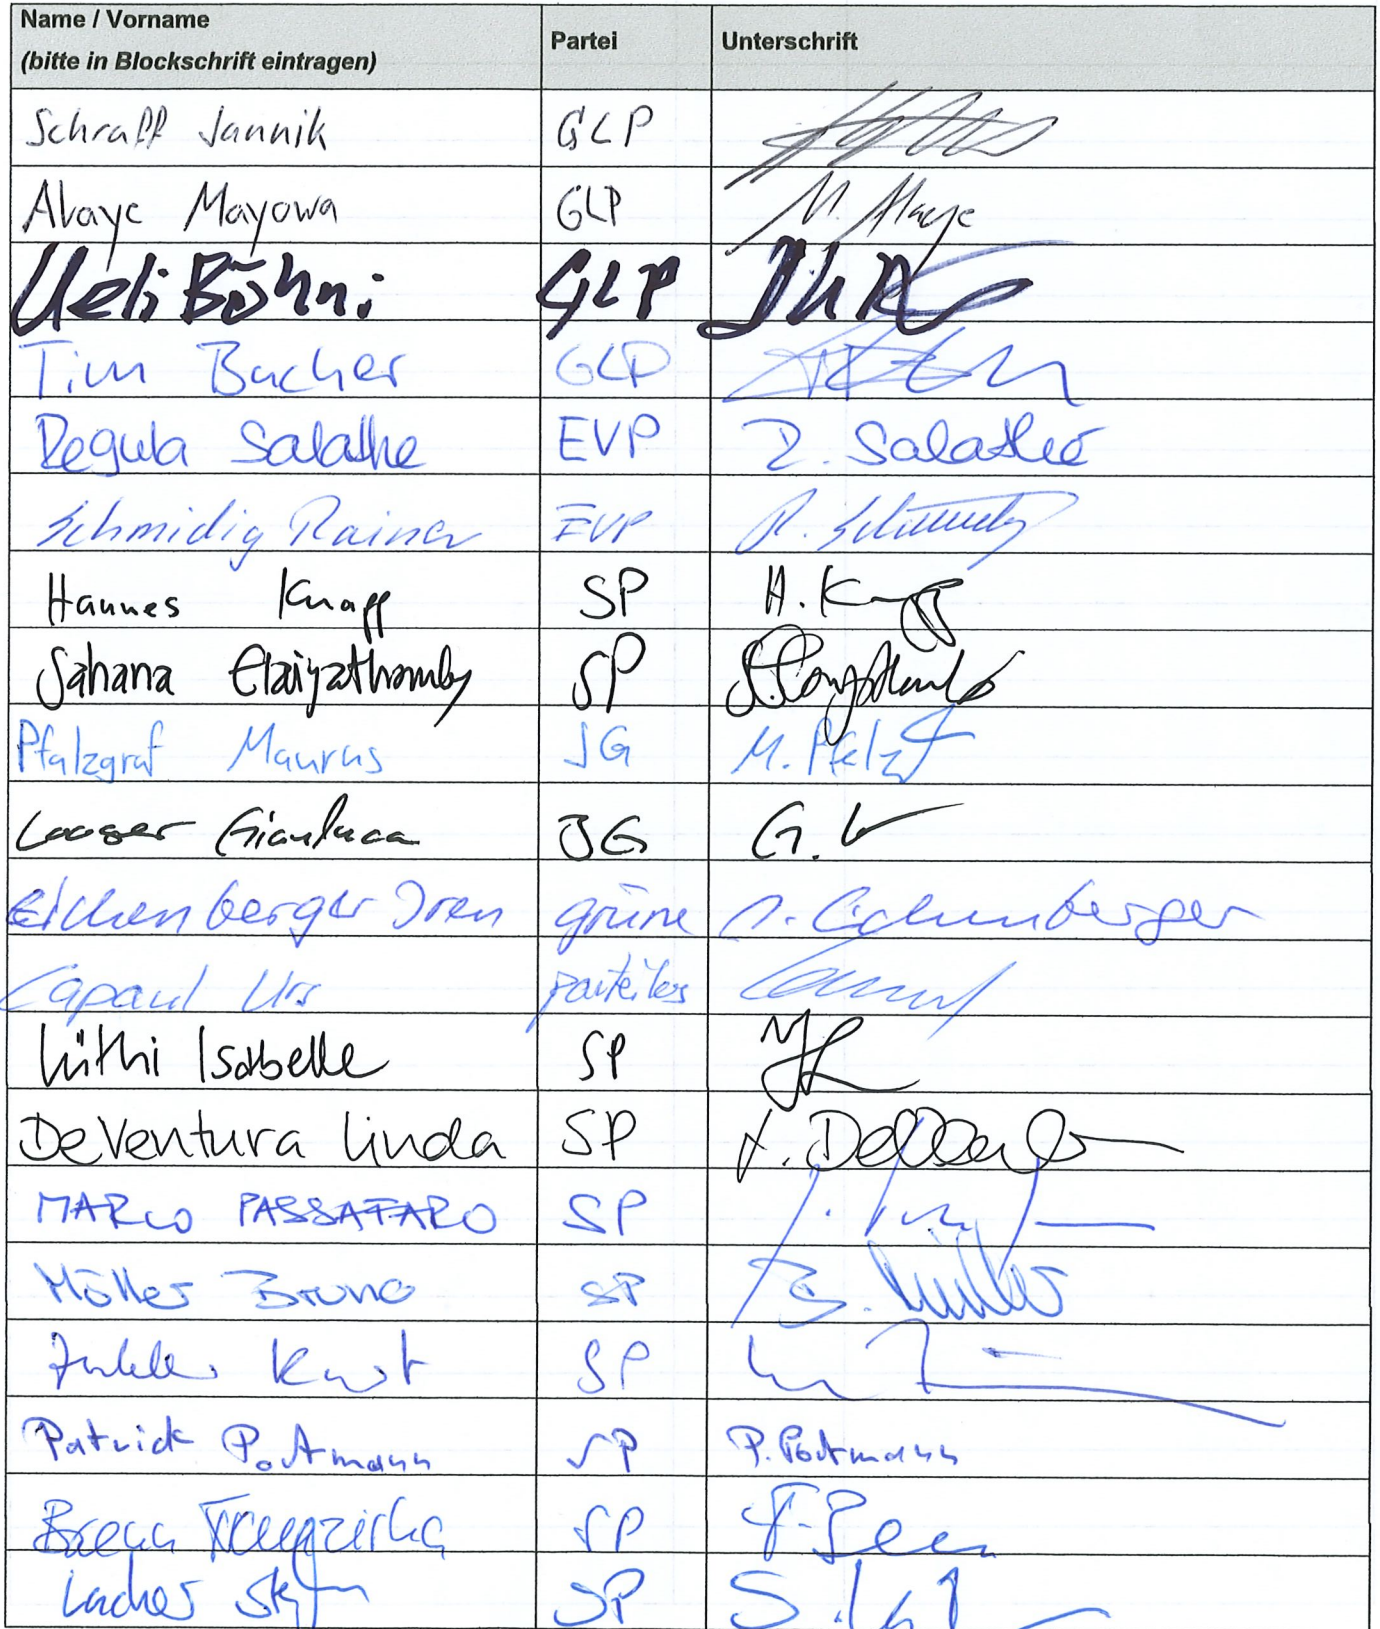 Name / Vorname
(bitte in Blockschrift eintragen)
Partei Unterschrift
Schraff Jannik GLP
Alaye Mayowa GLP M. Alaye
Ueli Böhni GLP
Tim Bucher GLP
Regula Salathe EVP R. Salathé
Schmidig Rainer EVP R. Schmidig
Hannes Knapp SP H. Knapp
Sahana Elaiyathamby SP
Pfalzgraf Maurus JG M. Pfalz
Looser Gianluca JG G. L
Eichenberger Iren grüne I. Eichenberger
Capaul Urs parteilos
Lüthi Isabelle SP
De Ventura Linda SP
MARCO PASSAFARO SP
Müller Bruno SP B. Müller
Kurt SP
Patrick Portmann SP P. Portmann
Brenn Franziska SP
Lacher Stefan SP